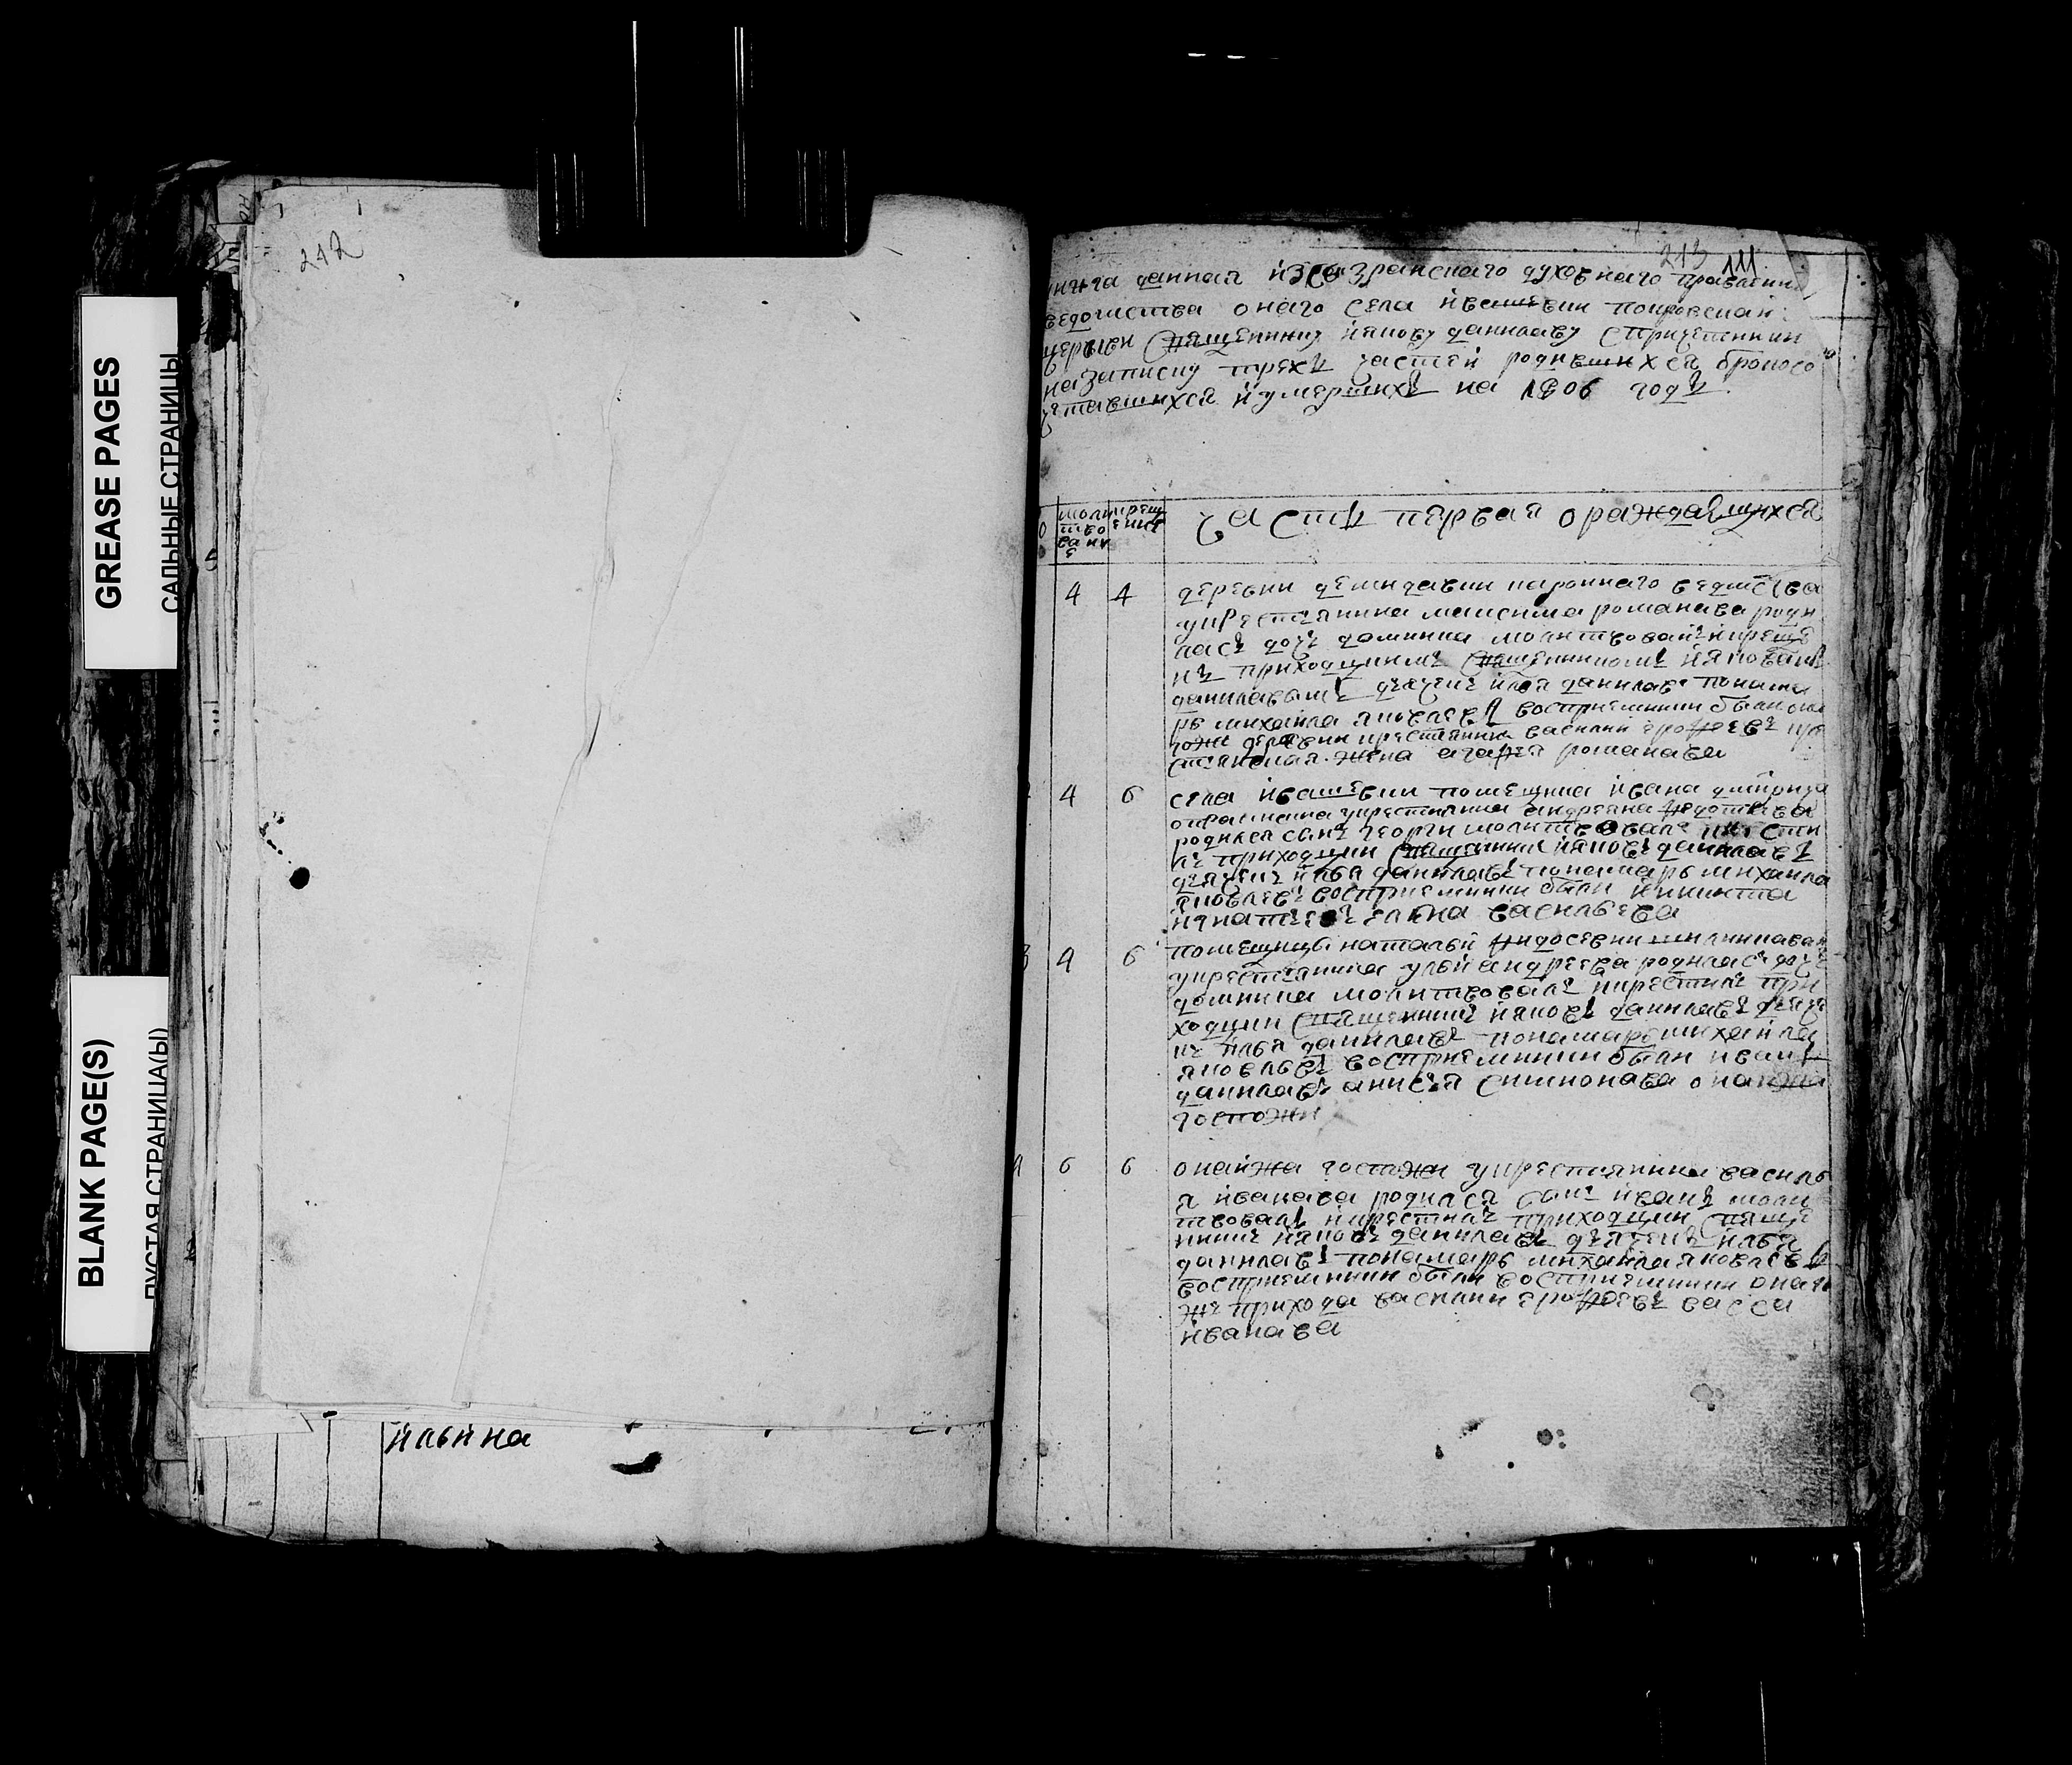 GREASE PAGES
САЛЬНЫЕ СТРАНИЦЫ
BLANK PAGE(S)
ПУСТАЯ СТРАНИЦА(Ы)
212
ильина
213 111
данная из сызранскаго духовнаго правлени
ведомства онаго села ивашевки покровскаи
церкви священнику иякову данилаву спричетники
назаписку трехъ частей родившихся броносо
четавшихся иумершихъ на 1806 годъ
молитвование
крещение
часть первая ораждающихся
4 4 деревни демидавки кароннаго
укрестьянина максима романава роди
лась дочь домника молитвовалъ икреще
нъ приходцкимъ священникомъ ияковамъ
данилавымъ дьячекъ илья данилавъ понама
рь михаила яковлевъ восприемники были
деревни крестьянинъ василий ерофеевъ кре
стьянская жена агафья романава
4 6 села ивашевки помещика ивана
укрестьянина андреяна федотьева
родился сынъ георги молитвовалъ икрести
лъ приходцки священникъ ияковъ данилавъ
дьячекъ илья данилавъ понамарь михаила
яковлевъ восприемники были
елена васильева
3 4 6 помещицы натальи
укрестьянина андреева родилась дочь
домника молитвовалъ икрестилъ при
ходцки священникъ ияковъ данилавъ дьяче
къ илья данилавъ понамарь михаила
яковлевъ восприемники были иванъ
данилавъ анисья симионава
госпожи
4 6 6 госпожи укрестьянина василь
я иванава родился сынъ иванъ моли
твовалъ икрестилъ приходцки свяще
нникъ ияковъ данилавъ дьячекъ илья
данилавъ понамарь михаила яковлевъ
восприемники были восприемники онаго
же прихода василий ерофеевъ васса
иванава